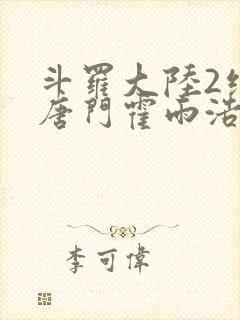 斗羅大陸2
唐門霍雨浩
李可偉